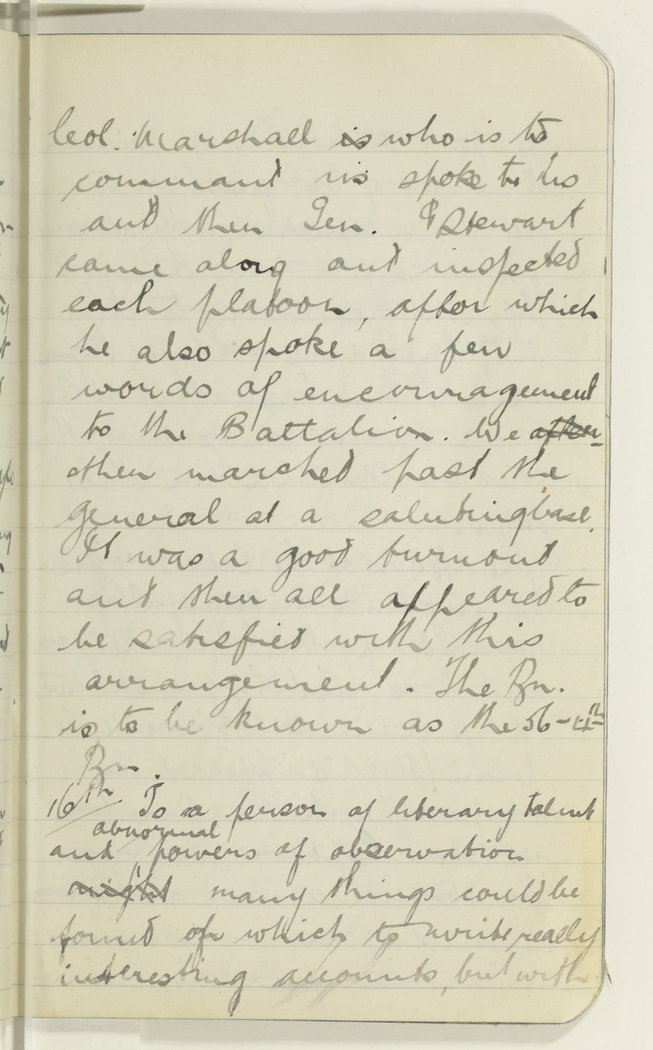 Col. Marshall is who is to
command us spoke to us
and then Gen. Stewart
came along and inspected
each platoon, after which
he also spoke a few
words of encouragement
to the Battalion. We after
then marched past the
general at a saluting base.
It was a good turnout
and then all appeared to
be satisfied with this
arrangement. The Bn.
is to be known as the 56-
Bn.
16th To a person of literary talent
abnormal
and powers of observation
might many things could be
found of which to write really
interesting accounts, but with